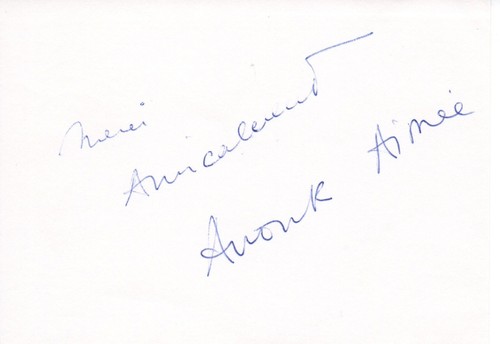 Merci
Amicalement
Anouk Aimée